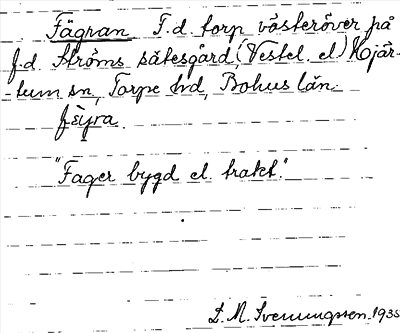 Fägran T.d. torp västeröver på
f.d. Ströms sätesgård, (Vestel. el) Hjär-
-tum sn, Torpe hd, Bohus län.
"Fager bygd el. trakt."
D. M. Svenungsson. 1935